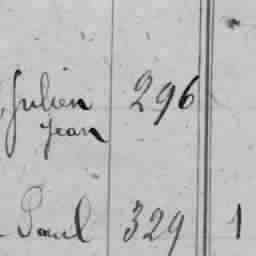 , Julien 296
Jean
Paul 329 1